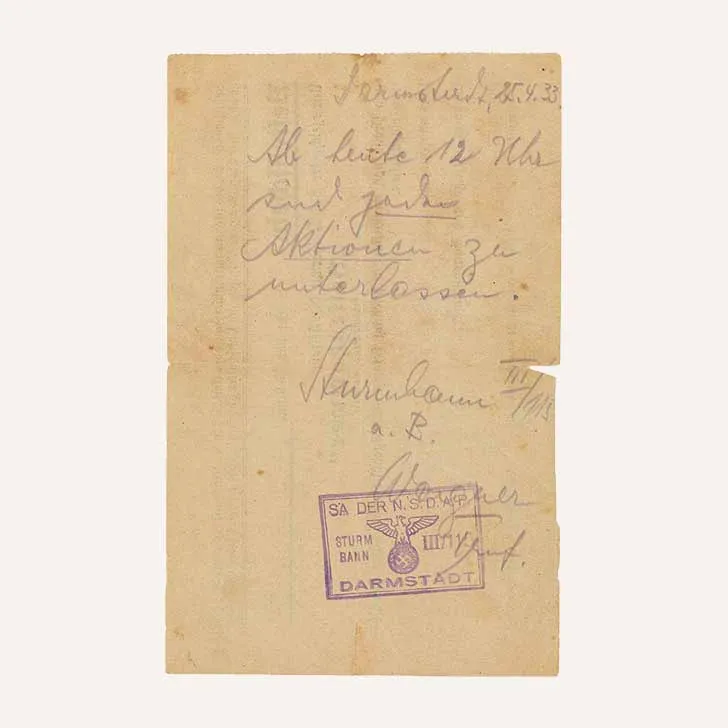 Darmstadt, 25.4.33.
Ab heute 12 Uhr
sind jede
Aktionen zu
unterlassen.
Sturmbann III/115
a. B.
Wagner
SA DER N.S.D.A.P.
STURM
BANN
III/115
DARMSTADT